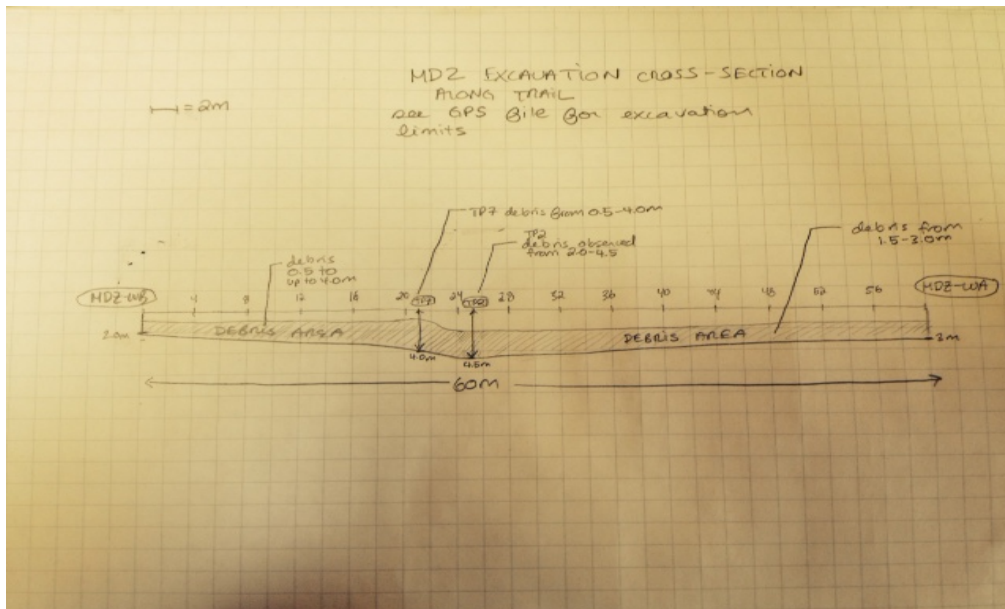 MDZ EXCAVATION CROSS-SECTION
ALONG TRAIL
= 2m
see GPS file for excavation
limits
TP7 debris from 0.5-4.0m
TP2
debris observed
from 2.0-4.5
debris from
1.5-3.0m
debris
0.5 to
up to 4.0m
MDZ-WB 4 8 12 16 20 TP7 24 TP2 28 32 36 40 44 48 52 56 MDZ-WA
2.0m DEBRIS AREA DEBRIS AREA 3m
4.0m 4.5m
60m